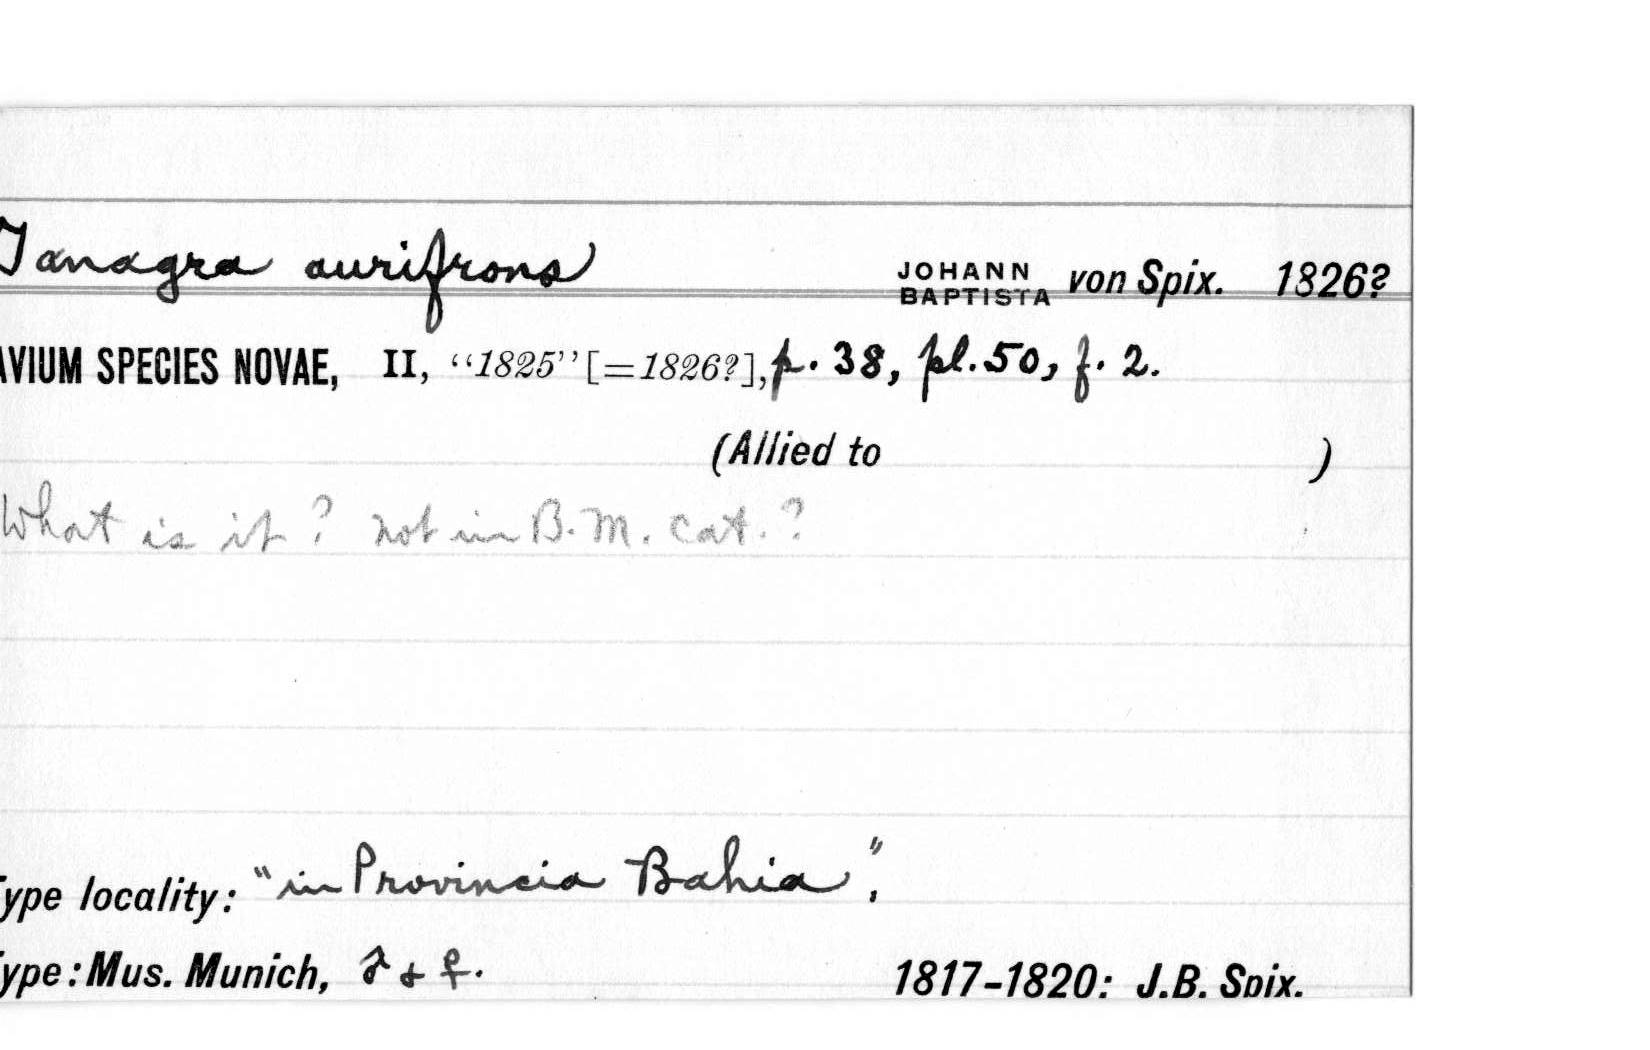 Tanagra aurifrons JOHANN BAPTISTA von Spix. 1826?
AVIUM SPECIES NOVAE, II, “1825” [=1826?], p. 38, pl. 50, f. 2.
(Allied to )
What is it? not in B.M. Cat.?
Type locality: "in Provincia Bahia",
Type: Mus. Munich, ♂ & ♀. 1817-1820: J.B. Spix.